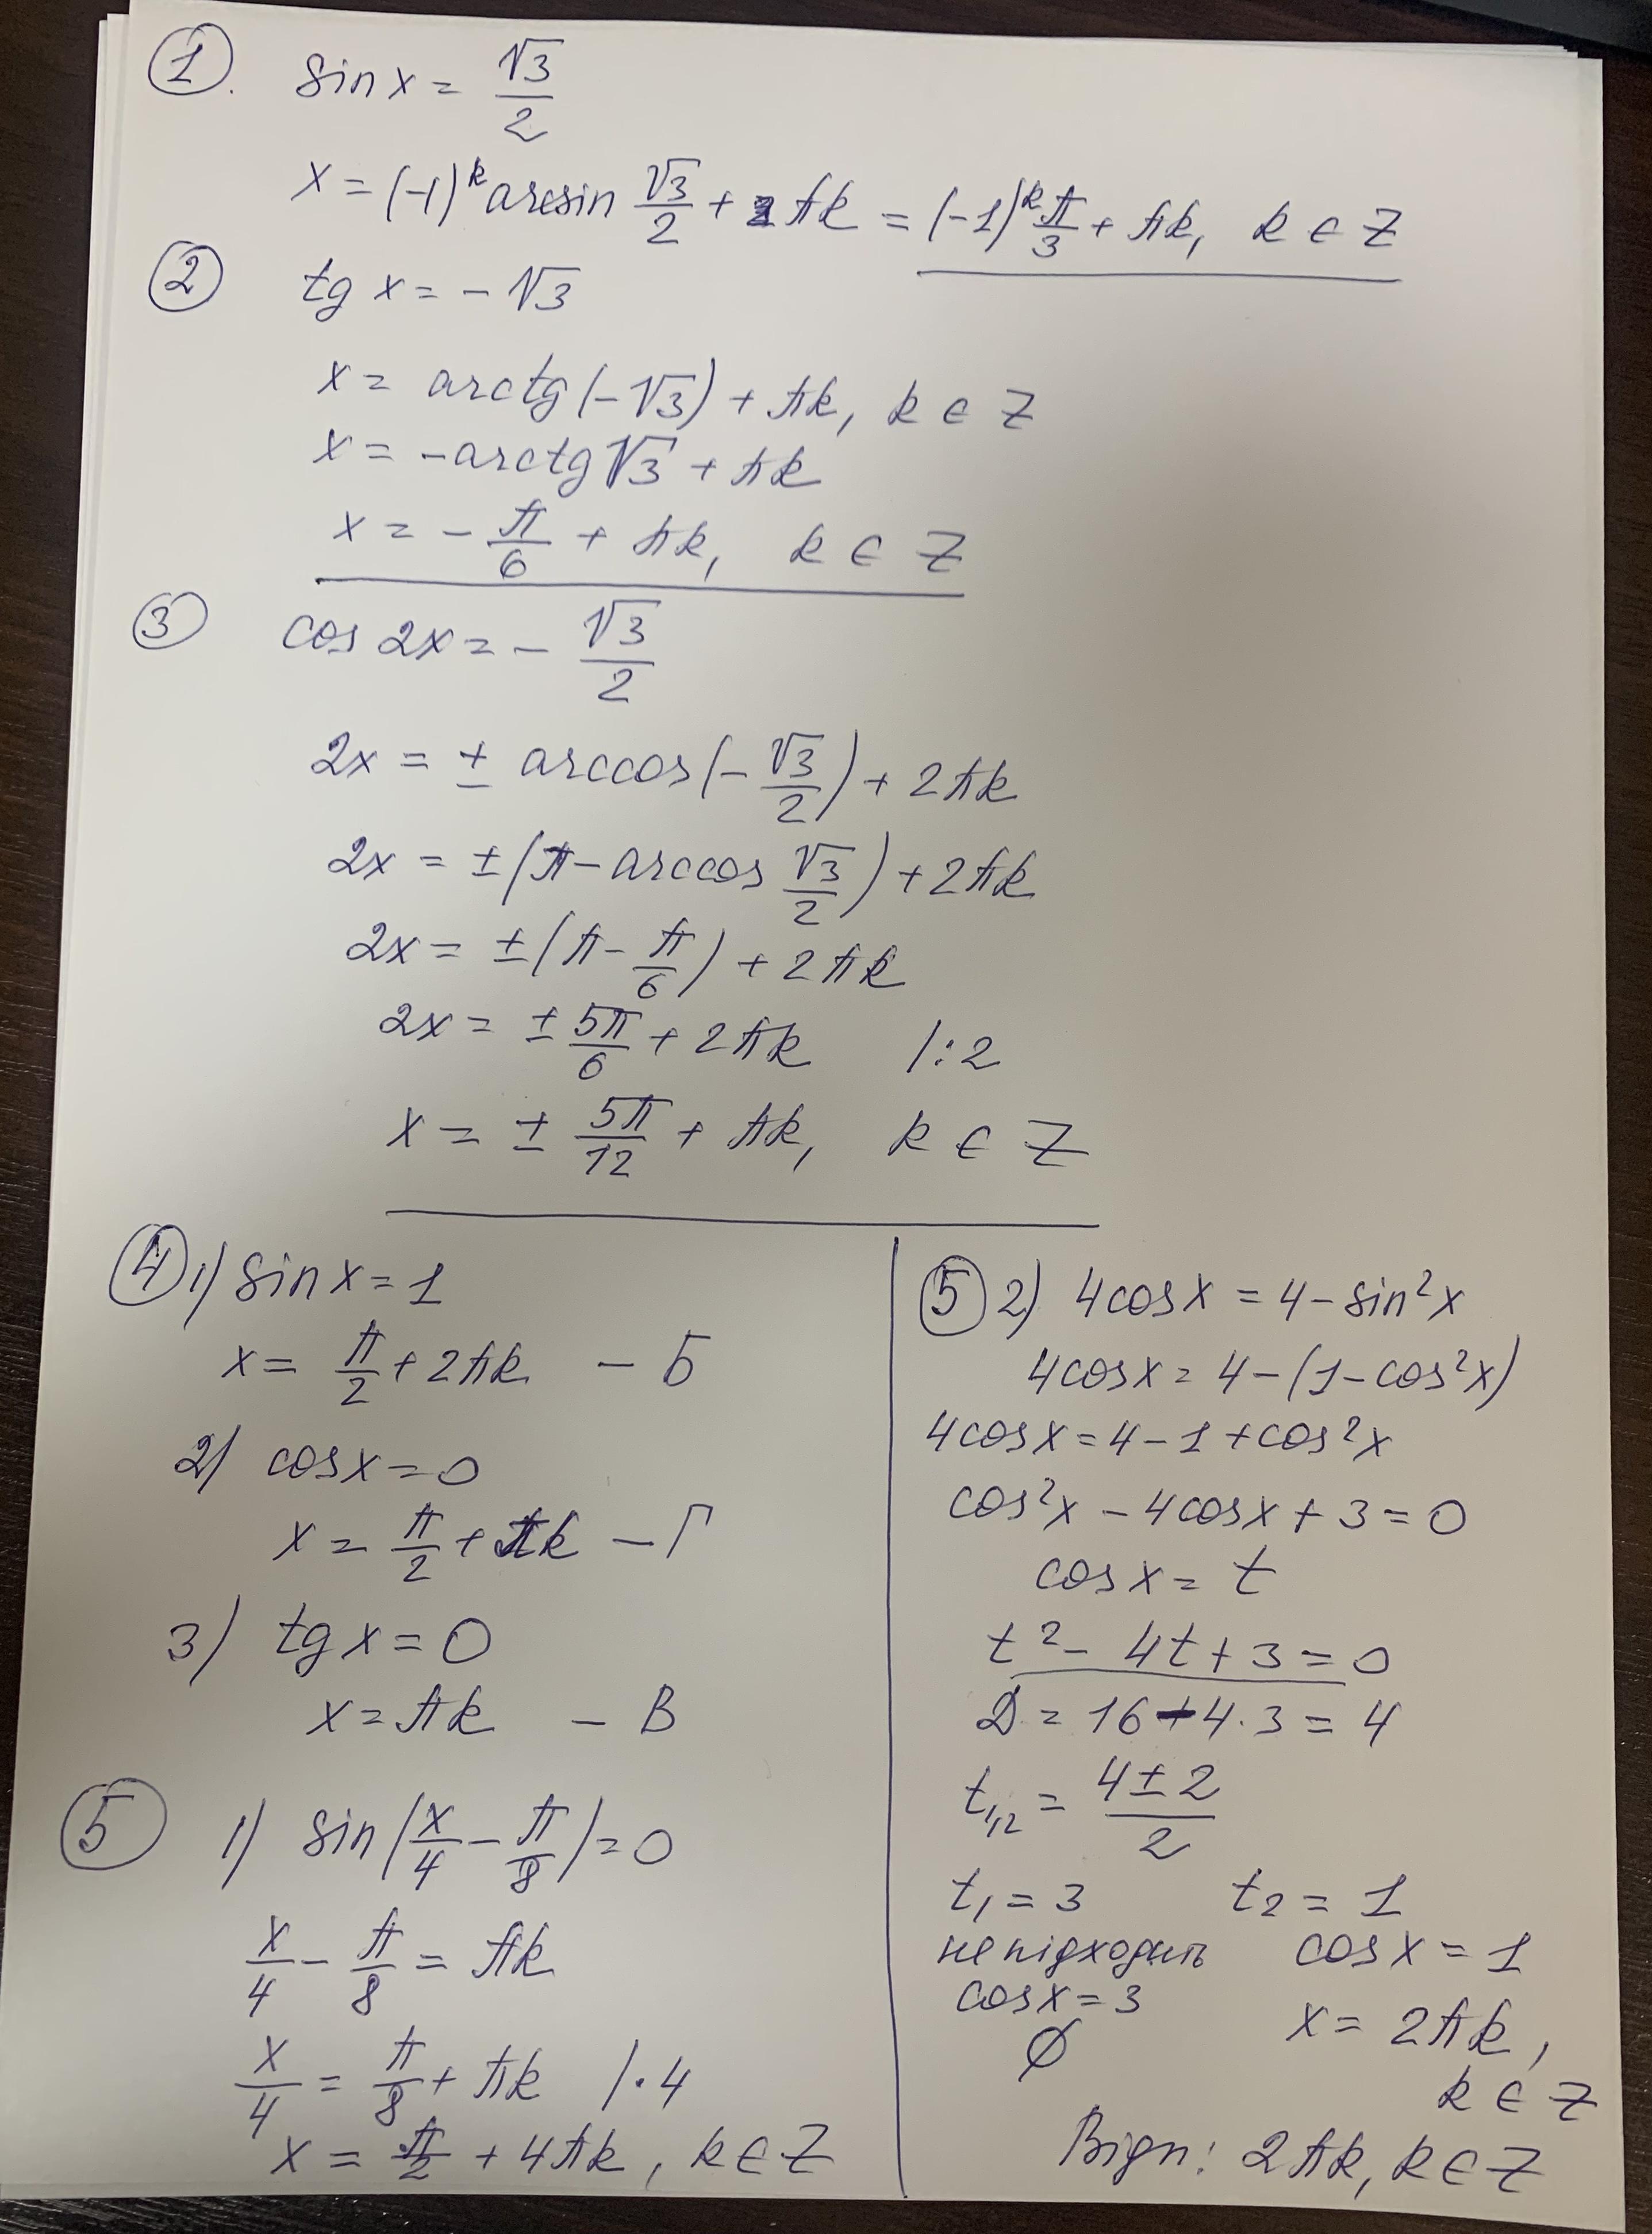 1. sin x = √3/2
x = (-1)^k arcsin √3/2 + πk = (-1)^k π/3 + πk, k ∈ Z
2 tg x = - √3
x = arctg(-√3) + πk, k ∈ Z
x = -arctg√3 + πk
x = - π/6 + πk, k ∈ Z
3 cos 2x = - √3/2
2x = ± arccos(-√3/2) + 2πk
2x = ±(π - arccos √3/2) + 2πk
2x = ±(π - π/6) + 2πk
2x = ± 5π/6 + 2πk /:2
x = ± 5π/12 + πk, k ∈ Z
4 1) sin x = 1
x = π/2 + 2πk - Б
2) cos x = 0
x = π/2 + πk - Г
3) tg x = 0
x = πk - В
5 1) sin(x/4 - π/8) = 0
x/4 - π/8 = πk
x/4 = π/8 + πk /·4
x = π/2 + 4πk, k ∈ Z
5 2) 4cos x = 4 - sin²x
4cos x = 4 - (1 - cos²x)
4cos x = 4 - 1 + cos²x
cos²x - 4cos x + 3 = 0
cos x = t
t² - 4t + 3 = 0
D = 16 - 4·3 = 4
t₁,₂ = (4 ± 2)/2
t₁ = 3 t₂ = 1
не підходить cos x = 1
cos x = 3 x = 2πk,
∅ k ∈ Z
Відп: 2πk, k ∈ Z